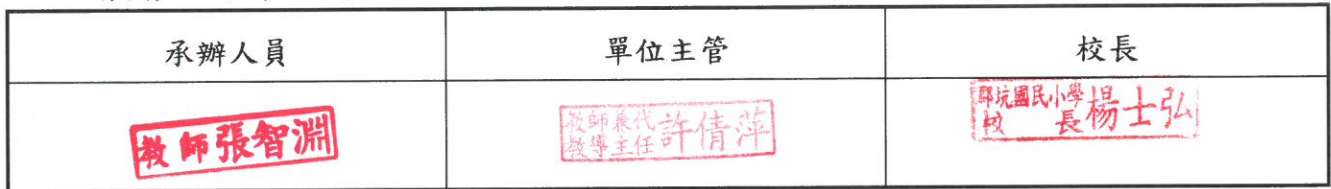 承辦人員
單位主管
校長
教師張智淵
教師兼代
教導主任許倩萍
國民小學
校長楊士弘